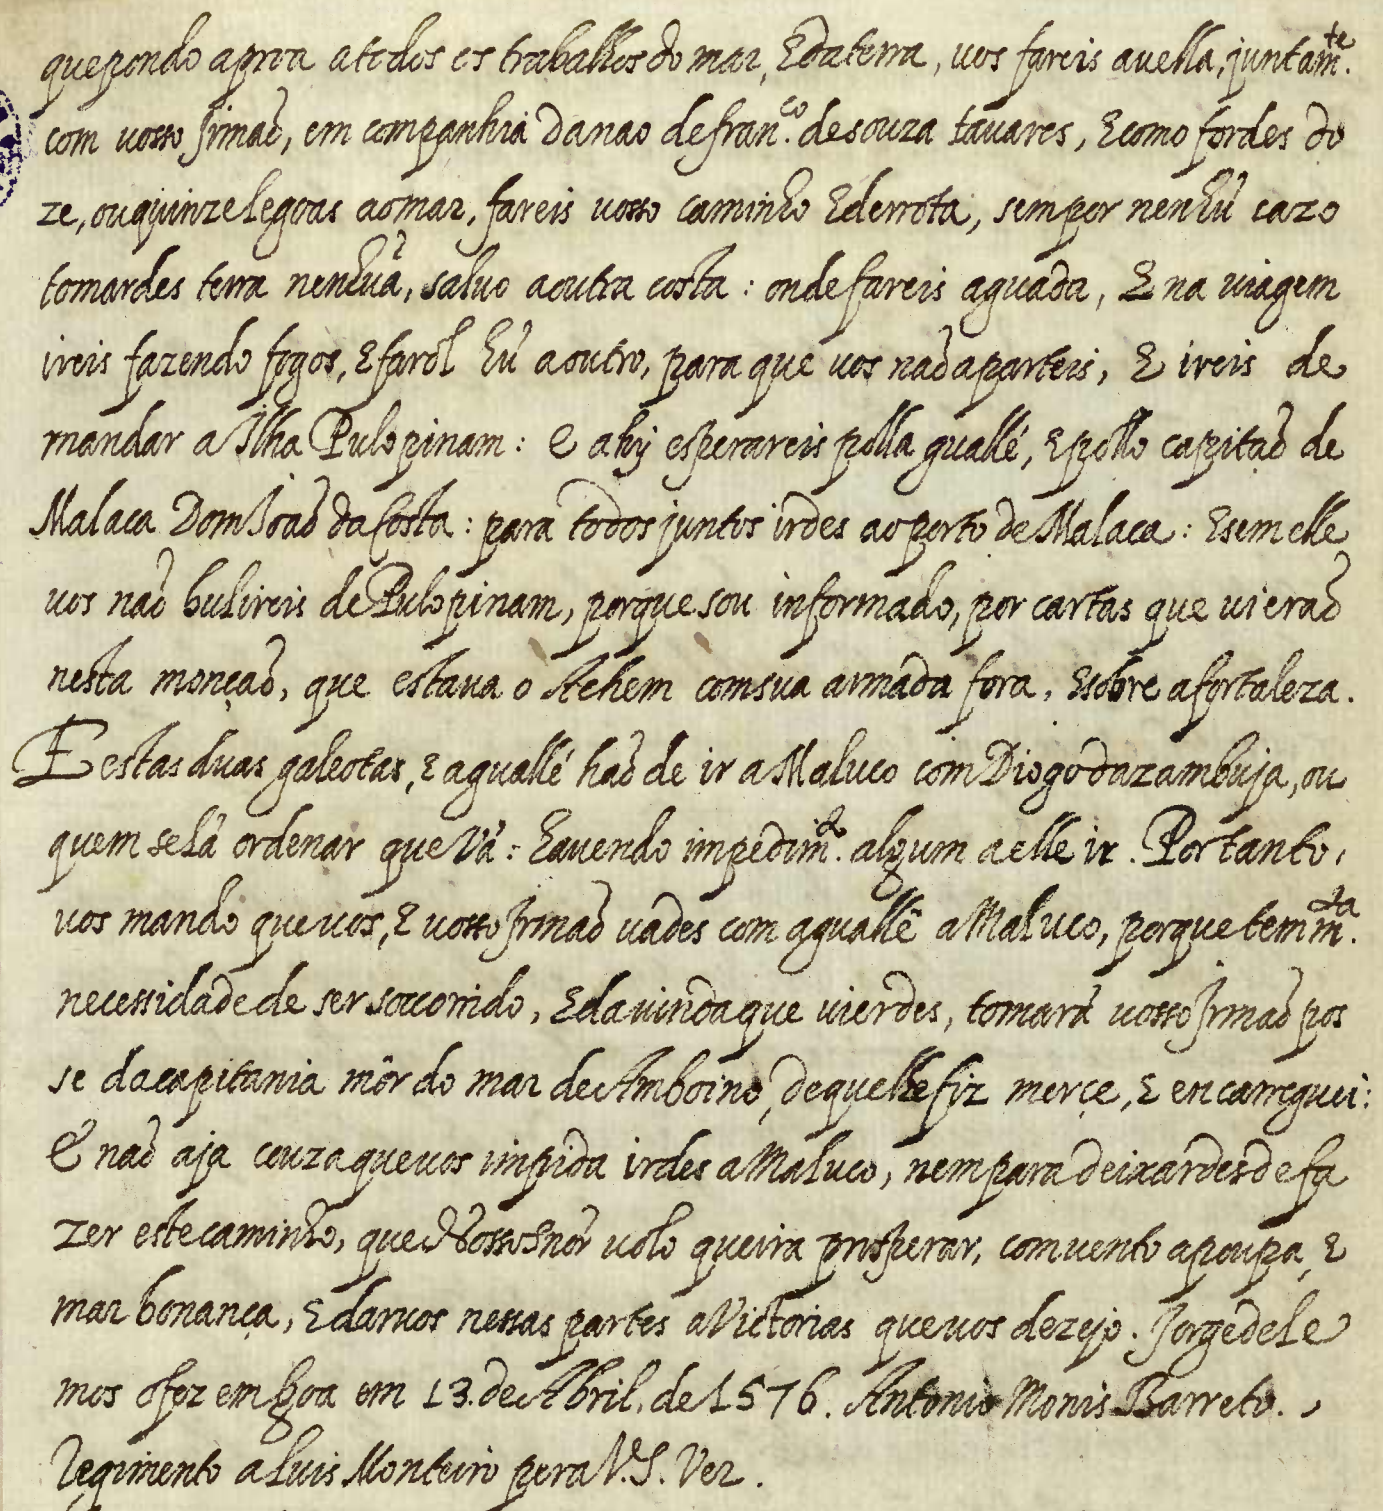 que pondo a proa a todos os traballos do mar, E da terra, uos fareis a uella, juntam.te
com uosso Jrmaõ, em companhia da nao de fran.co de souza tauares, E como fordes do
ze, ou quinze legoas ao mar, fareis uosso caminho E derrota, sem por nenhũ cazo
tomardes terra nenhuã, saluo a outra costa: onde fareis aguada, E na uiagem
ireis fazendo fogos, E farol hũ a outro, para que uos naõ aparteis, E ireis de
mandar a Ilha Pulopinam: E ahÿ esperareis polla guallé, E pollo capitaõ de
Malaca Dom Joaõ da Costa: para todos juntos irdes ao porto de Malaca: E sem elle
uos naõ bulireis de Pulopinam, porque sou informado, por cartas que uieraõ
nesta monçaõ, que estaua o Achem com sua armada fora, E sobre a fortaleza.
E estas duas galeotas, E a guallé haõ de ir a Maluco com Diogo dazambuja, ou
quem se lá ordenar que Vá: hauendo impedim.to algum a elle ir. Portanto,
uos mando que uos, E uosso Jrmaõ uades com a guallê a Maluco, porque tem m.ta
necessidade de ser soccorrido, E da uinda que uierdes, tomará uosso Jrmaõ pos
se da capitania môr do mar de Amboino, de que lhe fiz merçe, E encarreguei:
E naõ aja couza que uos impida irdes a Maluco, nem para deixardes de fa
zer este caminho, que Nosso Snõr uolo queira prosperar, com uento a poupa, E
mar bonança, E daruos nessas partes a Victorias que uos dezejo. Jorge de Le
mos o fez em goa em 13. de Abril, de 1576. Antonio Monis Barreto.
Regimento a Luis Monteiro pera V. S. Ver.